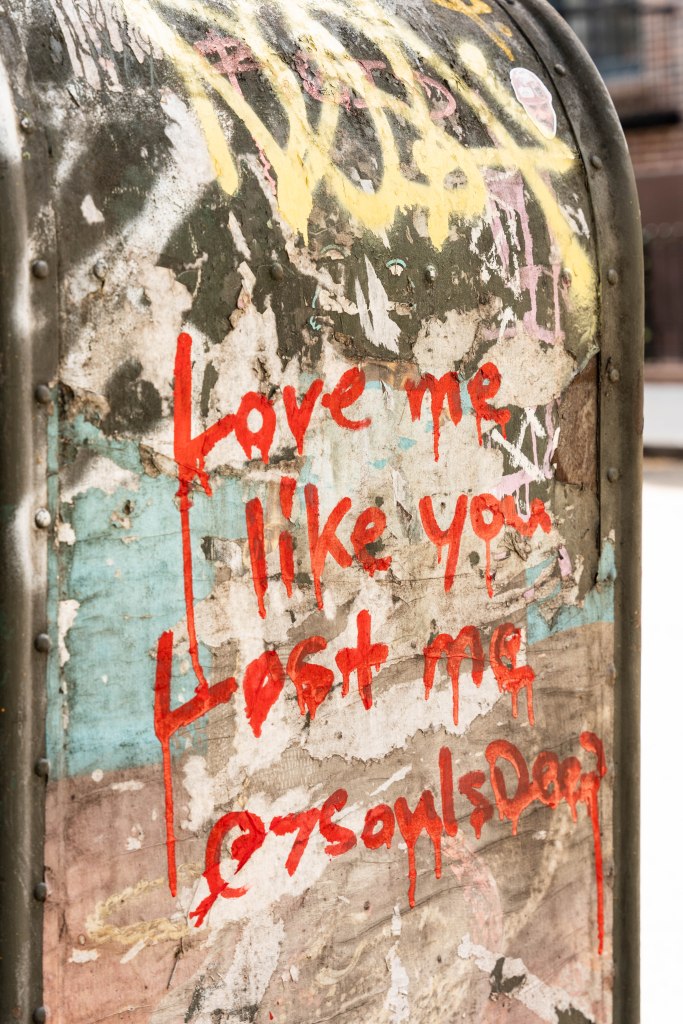 Love me
like you
Lost me
@7soulsDeep